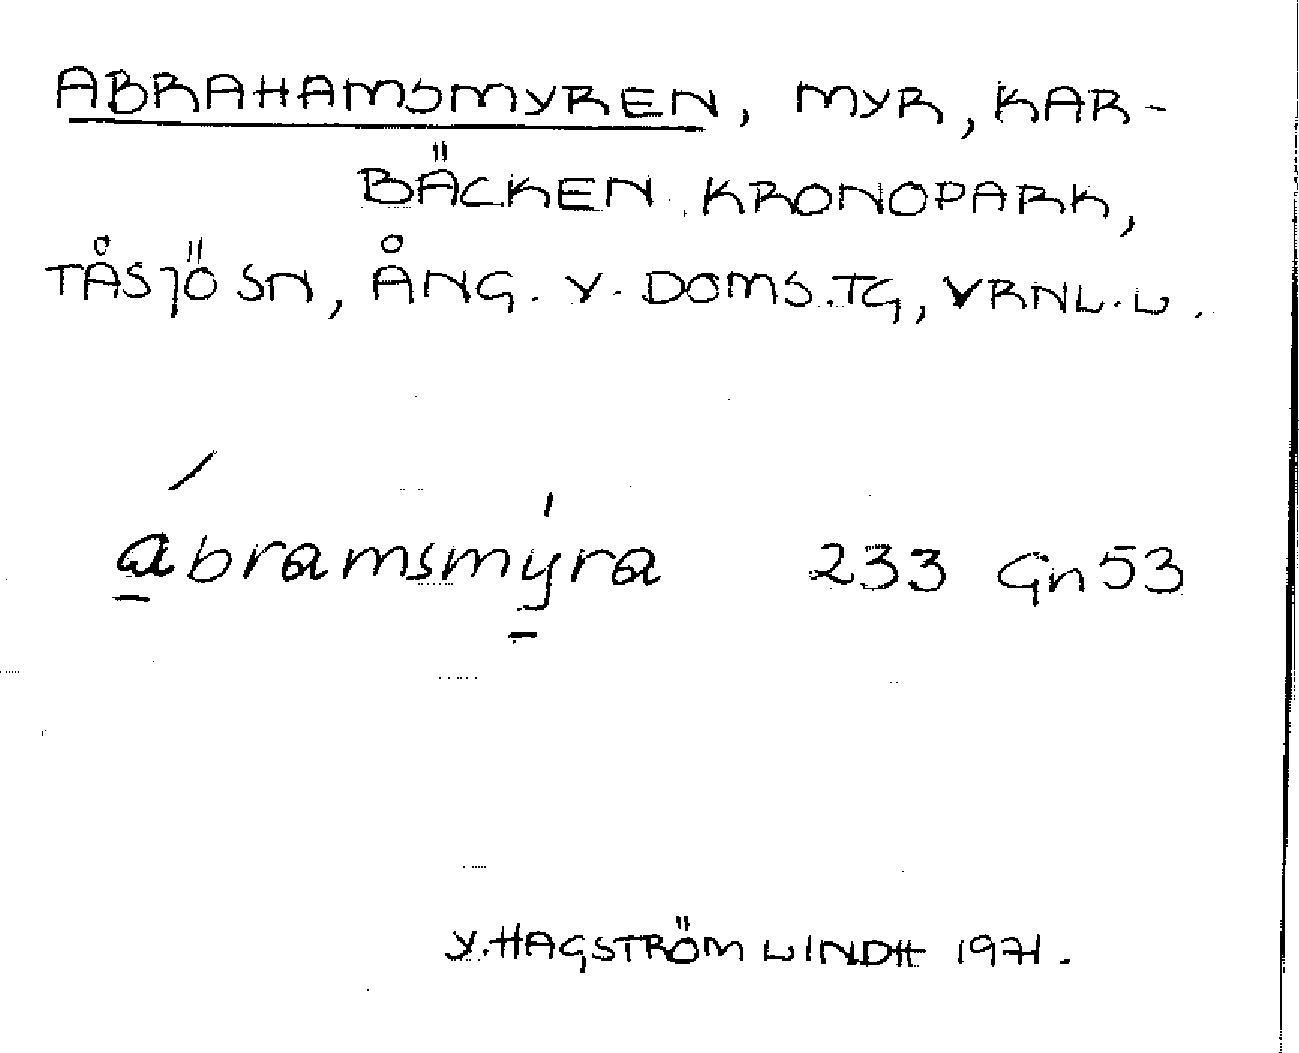 ABRAHAMSMYREN, MYR, KAR-
BÄCKEN KRONOPARK,
TÅSJÖ SN, ÅNG. V. DOMS.TG, VRNL.L.
ábramsmyra 233 Gn53
Y. HAGSTRÖM LINDH 1971.